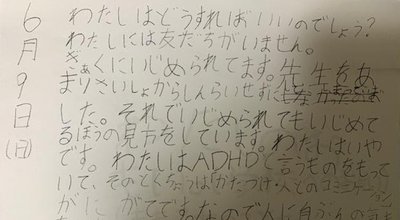 6月9日(日)
わたしはどうすればいいのでしょう?
わたしには友だちがいません。
ぎゃくにいじめられてます。先生をあ
まりさいしょからしんらいせずに
した。それでいじめられてもいじめて
るほうの見方をしています。わたしはいや
です。わたしはADHDと言うものをもって
いて、そのとくちょうは「かたづけ・人とのコミニケーション
がにがてです。なので人に自ぶんの